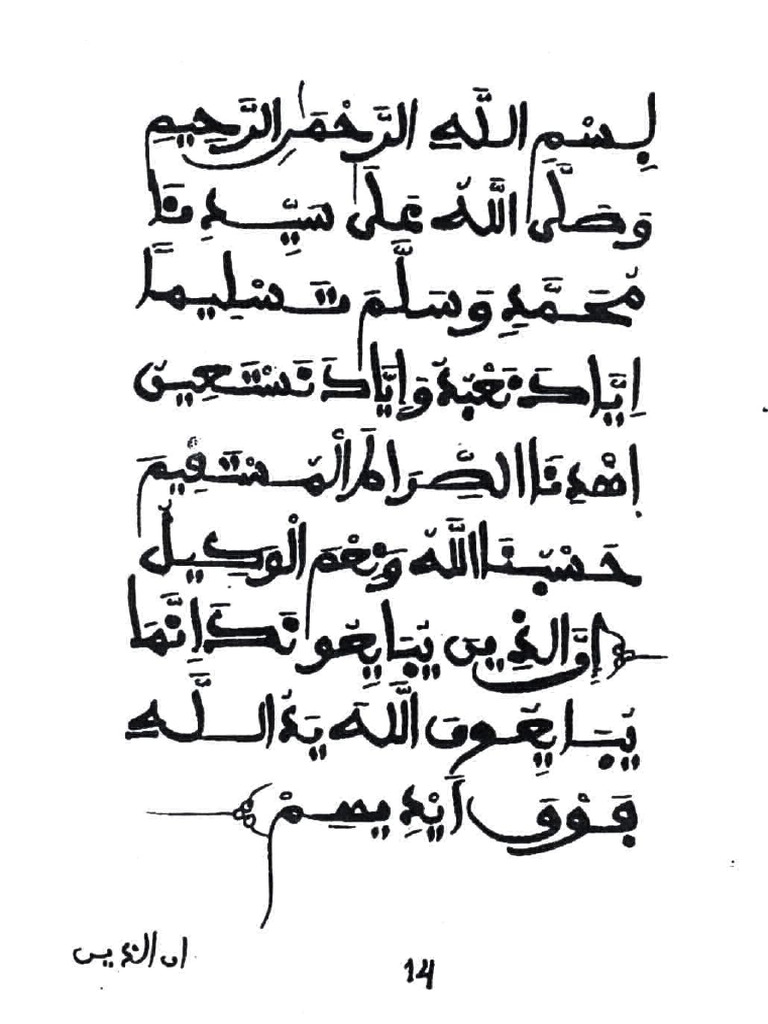 بِسْمِ اللَّهِ الرَّحْمَٰنِ الرَّحِيمِ
وَصَلَّى اللَّهُ عَلَى سَيِّدِنَا
مُحَمَّدٍ وَسَلَّمَ تَسْلِيمًا
إِيَّاكَ نَعْبُدُ وَإِيَّاكَ نَسْتَعِينُ
اِهْدِنَا الصِّرَاطَ الْمُسْتَقِيمَ
حَسْبُنَا اللَّهُ وَنِعْمَ الْوَكِيلُ
إِنَّ الَّذِينَ يُبَايِعُونَكَ إِنَّمَا
يُبَايِعُونَ اللَّهَ يَدُ اللَّهِ
فَوْقَ أَيْدِيهِمْ
ان الذين
14